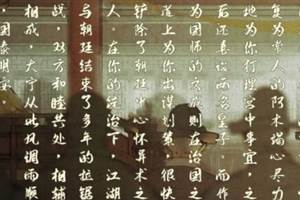 复为常人的阿竭心尽力
地为你打理宫中事宜，之
后还喜两名皇子，而作
为国师的则在治国之
道上为你出谋划策，很快
铲除了朝廷心怀异术之
人。在你的统治下，江湖
与朝廷结束了多年的拉锯
战，双方和睦共处，相辅
相成，大宁从此风调雨顺
国泰明安